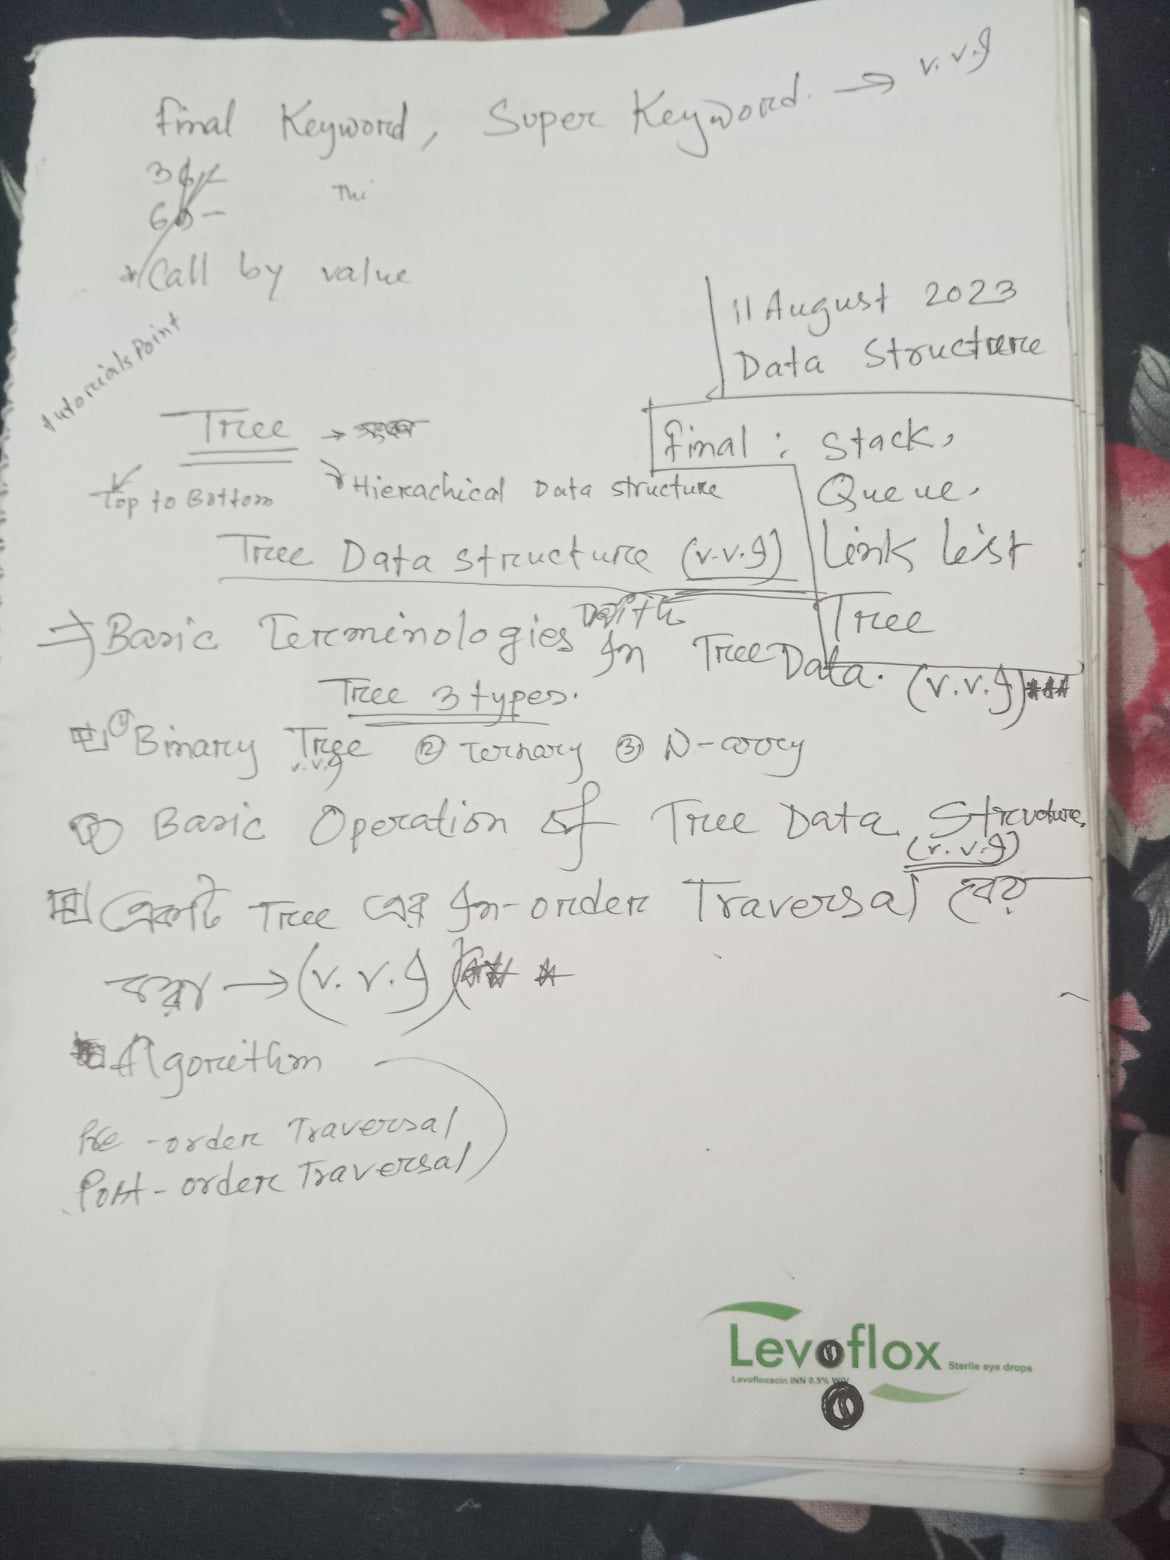 final Keyword, Super Keyword. → v.v.I
Thi
* Call by value
11 August 2023
Data Structure
tutorialsPoint
Tree →
Top to Bottom
→ Hierachical Data structure
final : Stack,
Queue,
Link List
Tree
Tree Data structure (v.v.I)
⇒ Basic Terminologies With In Tree Data. (v.v.I)***
Tree 3 types.
① Binary Tree ② Ternary ③ N-arry
v.v.I
Basic Operation of Tree Data Structure
(v.v.I)
একটি Tree এর In-order Traversal বের
করা → (v.v.I) *** *
Algorithm
Pre -order Traversal
Post-order Traversal
Levoflox Sterile eye drops
Levofloxacin INN 0.5% W/V